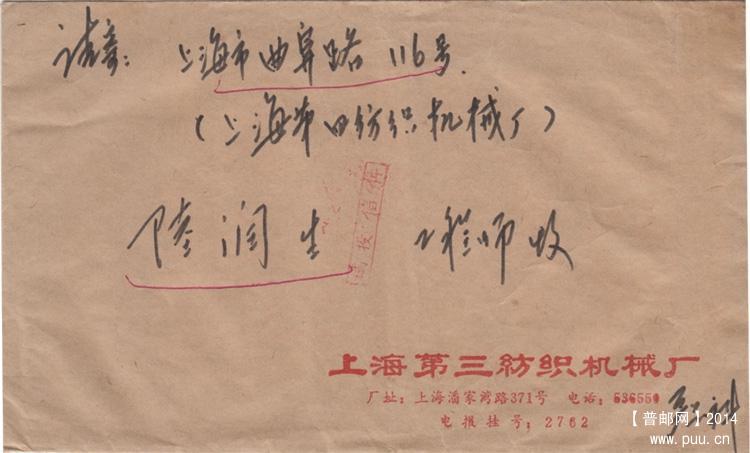 请寄：上海市曲阜路116号.
（上海第四纺织机械厂）
陆润生 工程师收
上海第三纺织机械厂
厂址：上海潘家湾路371号 电话：536550
电报挂号：2762
【普邮网】2014
www.puu.cn